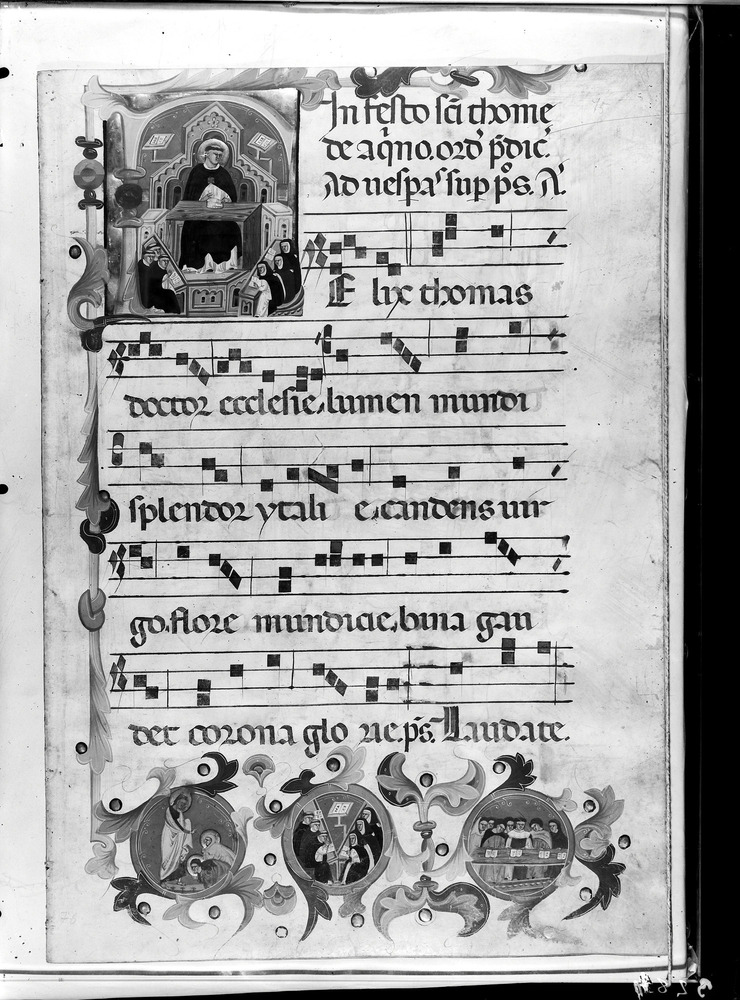 In festo sci thome
de aqno. ord pdic.
Ad uespas sup ps. A.
Felix thomas
doctor ecclesie, lumen mundi
splendor ytalie, candens uir
go. flore mundicie, bina gau
det corona glorie. ps. Laudate.